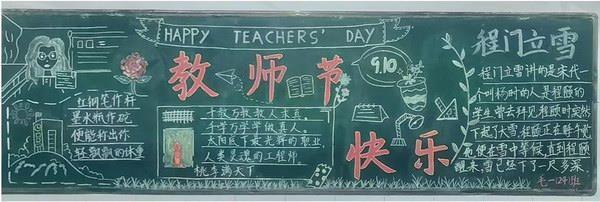 HAPPY TEACHERS' DAY
教师节
快乐
9.10
红钢笔作杆
墨水瓶作砣
使能称出你
轻飘飘的体重
千教万教教人求真,
千学万学学做真人。
太阳底下最光辉的职业
人类灵魂的工程师
桃李满天下
程门立雪
程门立雪讲的是宋代一
个叫杨时的人是程颐的
学生曾去拜见程颐时突然
下起了大雪,程颐正在睡午觉
醒来,雪已经下了一尺多深,